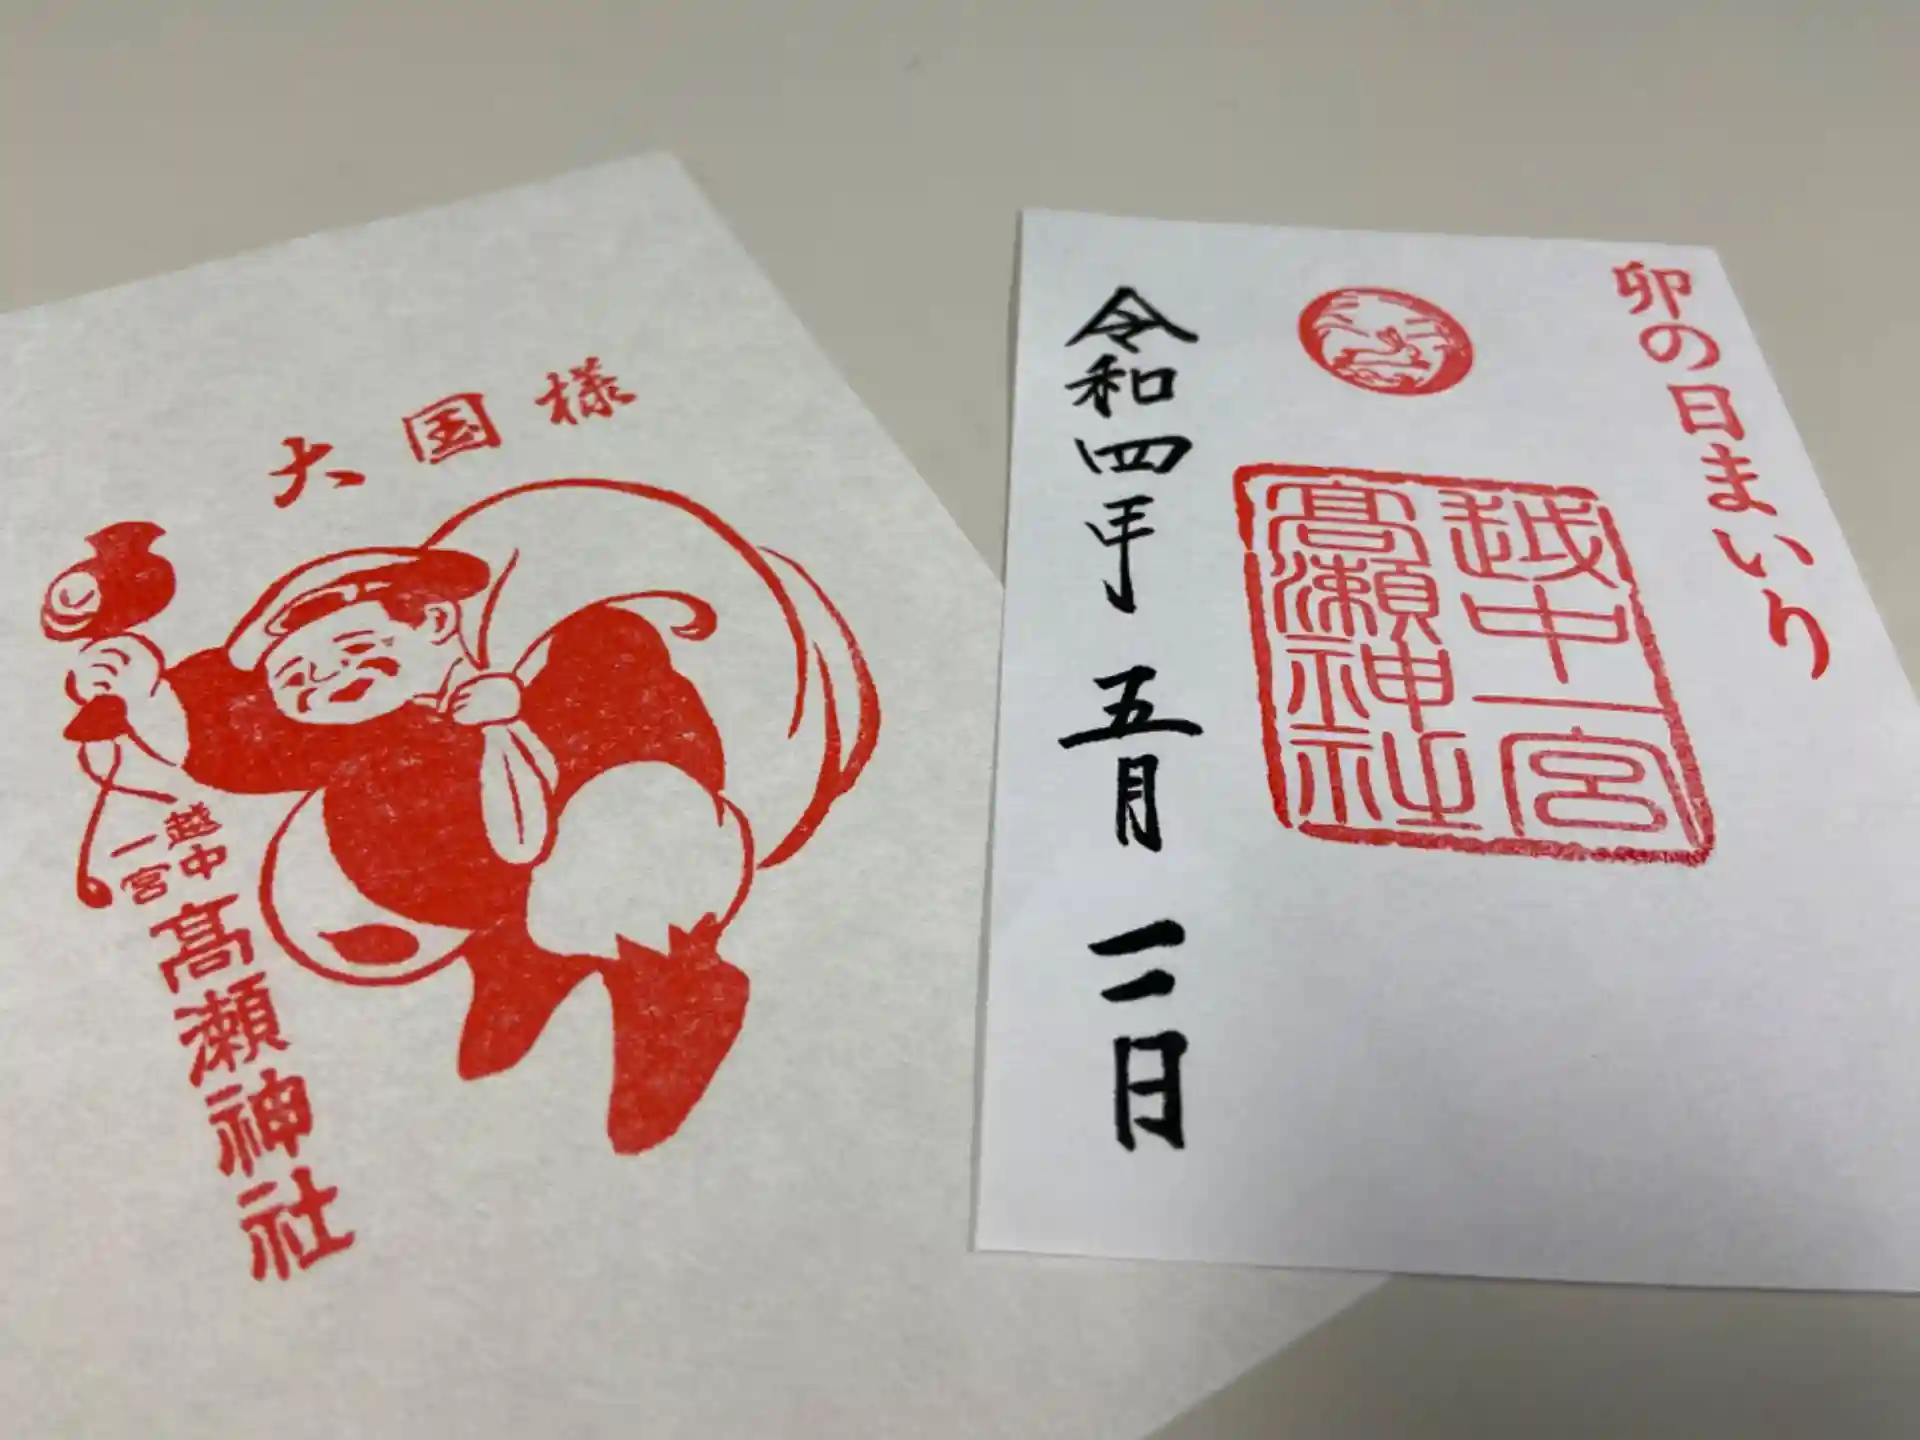 大国様
越中
一宮
高瀬神社
卯の日まいり
越中一宮
高瀬神社
令和四年 五月 二日